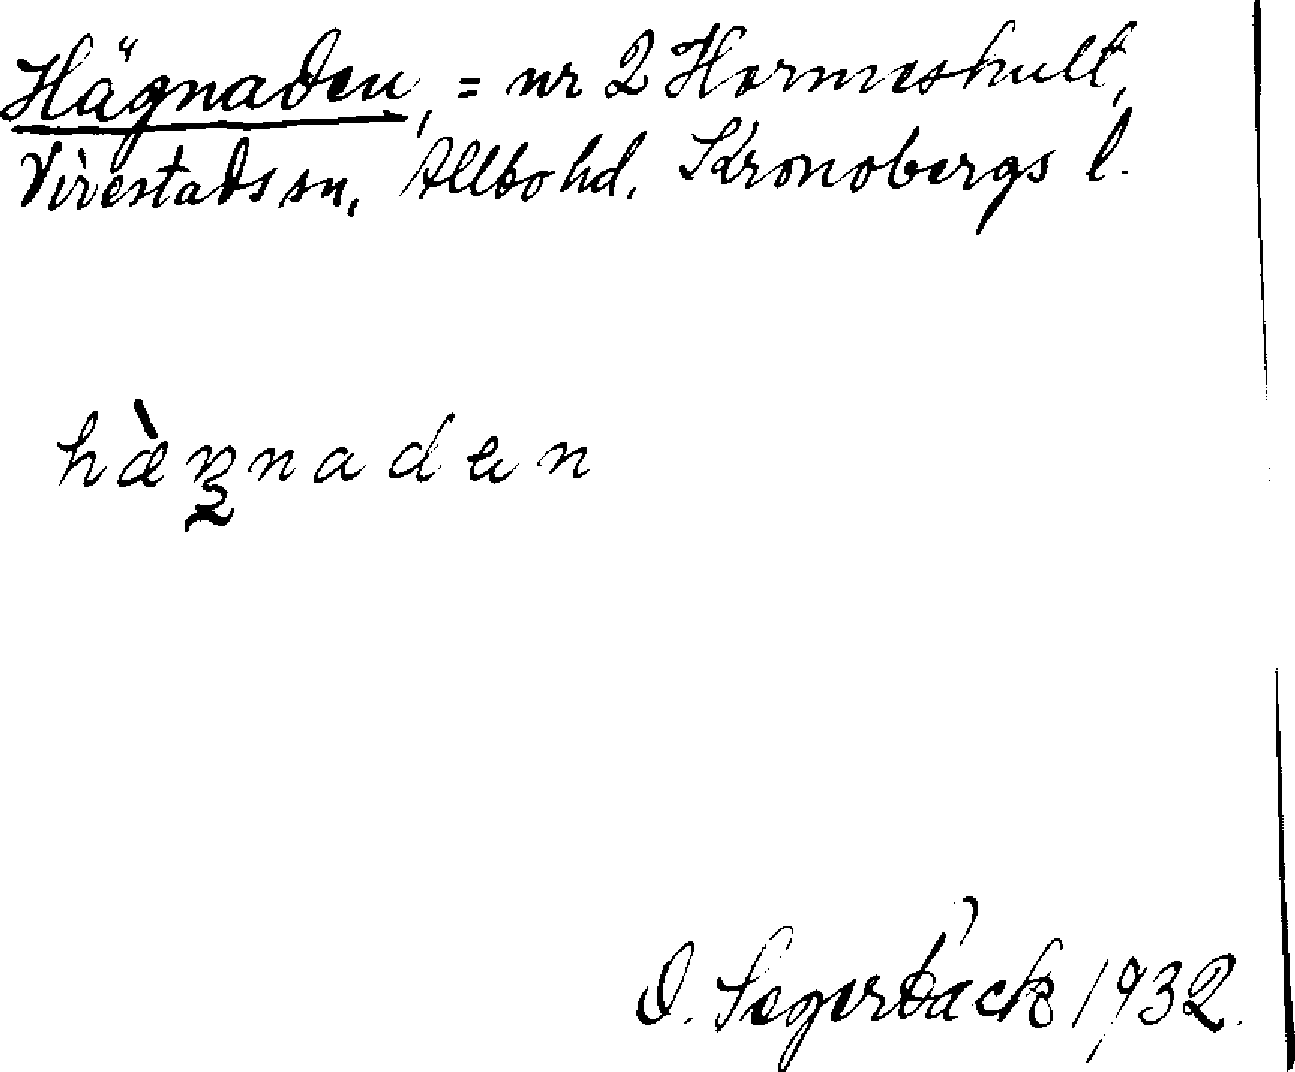 Hägnaden, = nr 2 Hormeshult,
Virestads sn, Allbo hd. Kronobergs l.
hæ̀ŋnadɐn
O. Segerbäck 1932.